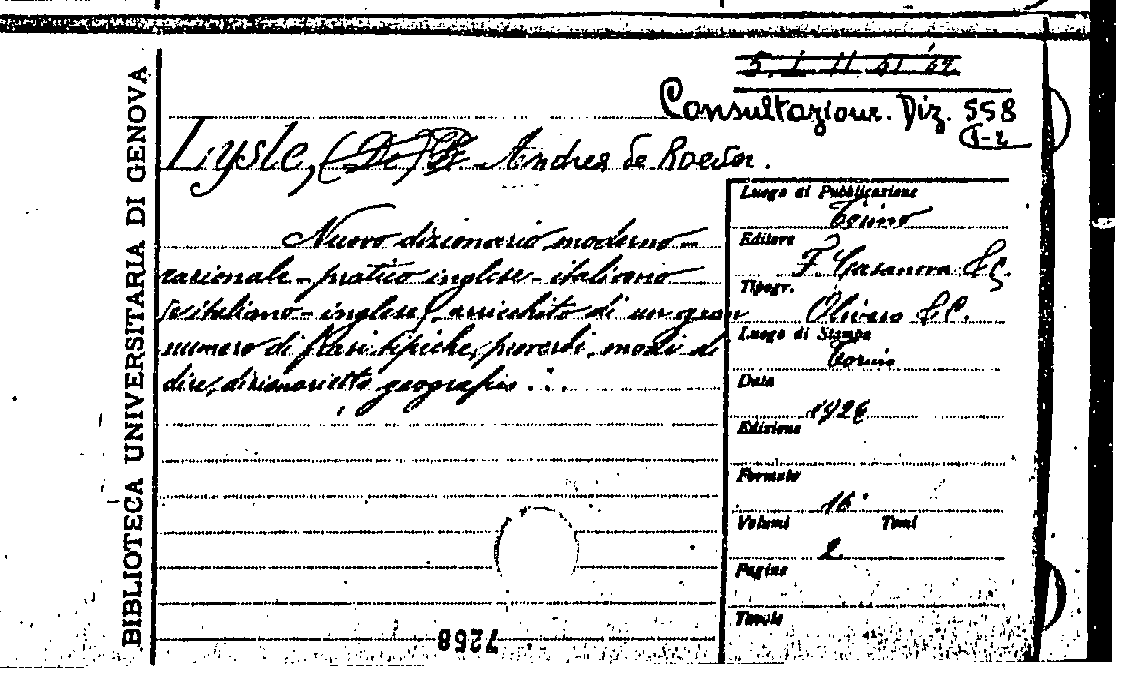 BIBLIOTECA UNIVERSITARIA DI GENOVA
5. I. II. 51 52
Consultazione. Diz. 558
1-2
Lysle, (De) Andrea de Roever.
Nuovo dizionario moderno-
razionale-pratico inglese-italiano
italiano-inglese, arricchito di un gran
numero di frasi tipiche, proverbi, modi di
dire, dizionarietto geografico...
Luogo di Pubblicazione
Torino
Editore
F. Casanova & C.
Tipogr.
Olivero & C.
Luogo di Stampa
Torino
Data
1926
Edizione
Formato
16°
Volumi Tomi
2
Pagine
Tavole
7268